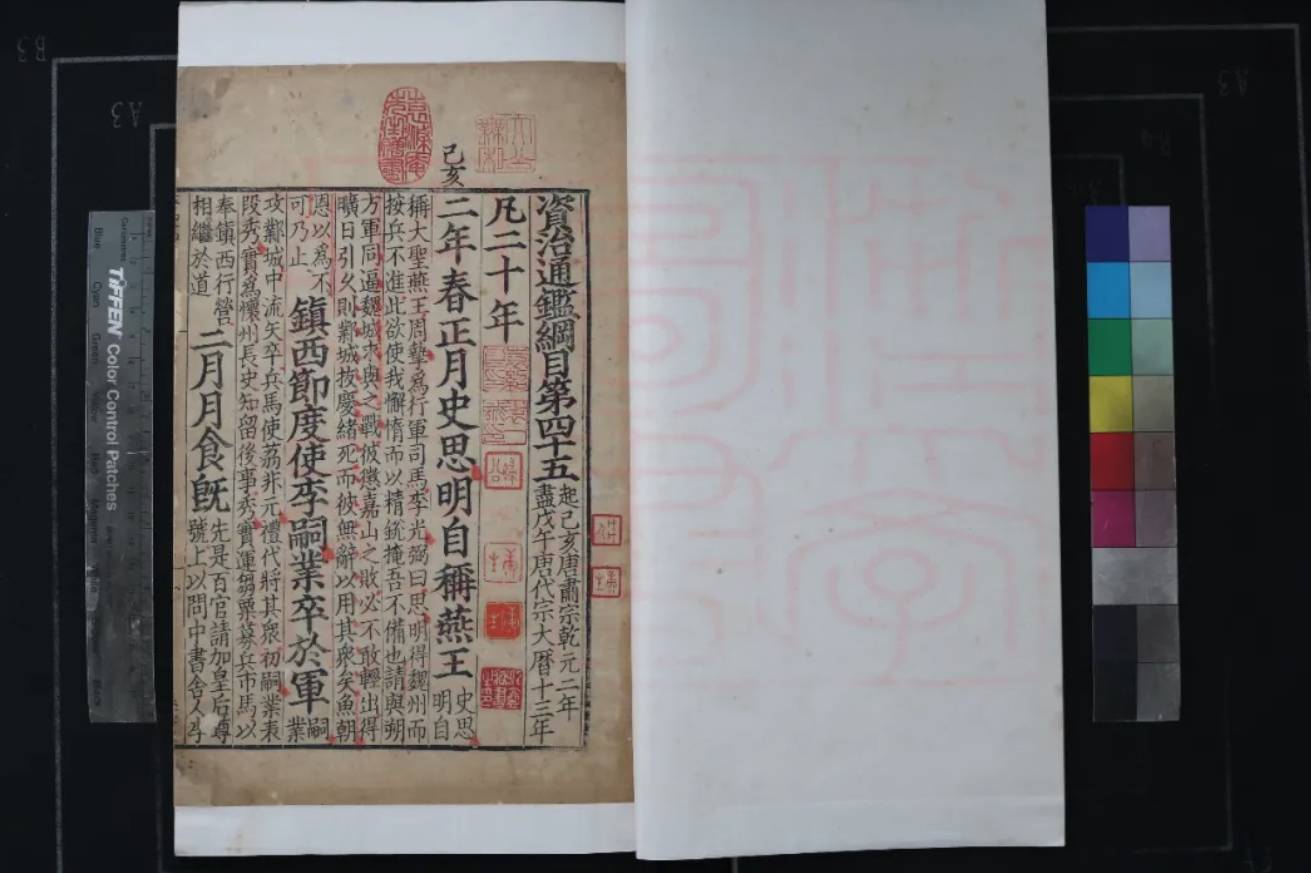 己亥
資治通鑑綱目第四十五
起己亥唐肅宗乾元二年
盡戊午唐代宗大曆十三年
凡二十年
二年春正月史思明自稱燕王
史思
明自
稱大聖燕王周摯爲行軍司馬李光弼曰思明得魏州而
按兵不進此欲使我懈惰而以精銳掩吾不備也請與朔
方軍同逼魏城求與之戰彼懲嘉山之敗必不敢輕出得
曠日引久則鄴城拔慶緒死而彼無辭以用其衆矣魚朝
恩以爲不
可乃止
鎮西節度使李嗣業卒於軍
嗣
業
攻鄴城中流矢卒兵馬使荔非元禮代將其衆初嗣業表
段秀實爲懷州長史知留後事秀實運芻粟募兵市馬以
奉鎮西行營
相繼於道
二月月食旣
先是百官請加皇后尊
號上以問中書舍人李
TIFFEN Color Control Patches
Blue
Cyan
Green
Red
Magenta
Black
A3
A3
B3